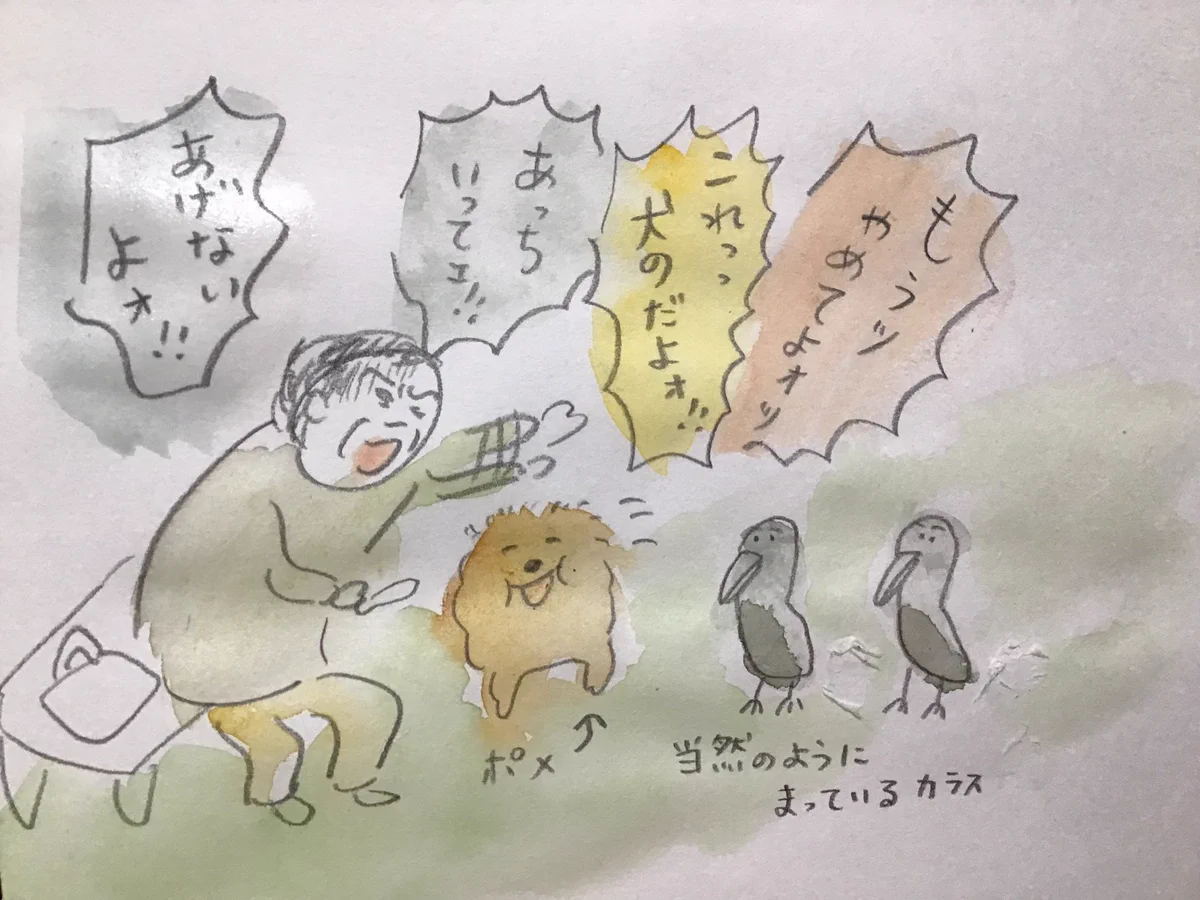 もうッ
やめてよォッ
これっっ
犬のだよォ!!
あっち
いってェ!!
あげない
よォ!!
ポメ
当然のように
まっているカラス